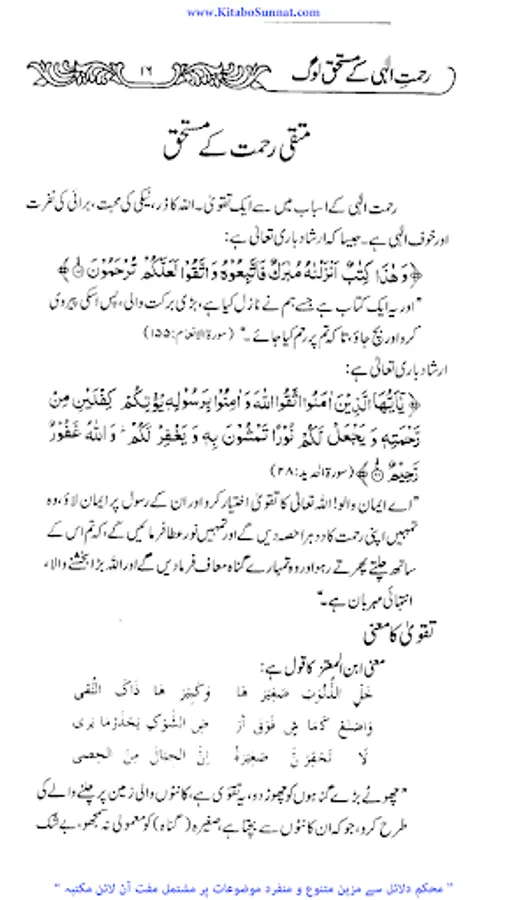 www.KitaboSunnat.com
رحمتِ الٰہی کے مستحق لوگ
۱۶
متقی رحمت کے مستحق
رحمت الٰہی کے اسباب میں سے ایک تقویٰ۔ اللہ کا ڈر، نیکی کی محبت، برائی کی نفرت
اور خوف الٰہی ہے۔ جیسا کہ ارشاد باری تعالیٰ ہے:
﴿وَهٰذَا كِتٰبٌ اَنْزَلْنٰهُ مُبٰرَكٌ فَاتَّبِعُوْهُ وَاتَّقُوْا لَعَلَّكُمْ تُرْحَمُوْنَ﴾
"اور یہ ایک کتاب ہے جسے ہم نے نازل کیا ہے، بڑی برکت والی، پس اسکی پیروی
کرو اور بچ جاؤ، تاکہ تم پر رحم کیا جائے۔" (سورۃ الانعام: ۱۵۵)
ارشاد باری تعالیٰ ہے:
﴿يٰۤاَيُّهَا الَّذِيْنَ اٰمَنُوا اتَّقُوا اللّٰهَ وَ اٰمِنُوْا بِرَسُوْلِهٖ يُؤْتِكُمْ كِفْلَيْنِ مِنْ
رَّحْمَتِهٖ وَ يَجْعَلْ لَّكُمْ نُوْرًا تَمْشُوْنَ بِهٖ وَ يَغْفِرْ لَكُمْ ؕ وَاللّٰهُ غَفُوْرٌ
رَّحِيْمٌ﴾ (سورۃ الحدید: ۲۸)
"اے ایمان والو! اللہ تعالیٰ کا تقویٰ اختیار کرو اور ان کے رسول پر ایمان لاؤ، وہ
تمہیں اپنی رحمت کا دہرا حصہ دیں گے اور تمہیں نور عطا فرمائیں گے، کہ تم اس کے
ساتھ چلتے پھرتے رہو اور وہ تمہارے گناہ معاف فرمادیں گے اور اللہ بڑا بخشنے والا،
انتہائی مہربان ہے۔"
تقویٰ کا معنی
معنی ابن المعتز کا قول ہے:
خَلِّ الذُّنُوْبَ صَغِيْرَ هَا وَكَبِيْرَ هَا ذَاكَ التُّقٰى
وَاصْنَعْ كَمَاشٍ فَوْقَ أَرْ ضِ الشَّوْكِ يَحْذَرُ مَا يَرٰى
لَا تَحْقِرَنَّ صَغِيْرَةً إِنَّ الْجِبَالَ مِنَ الْحَصٰى
"چھوٹے بڑے گناہوں کو چھوڑ دو، یہ تقویٰ ہے، کانٹوں والی زمین پر چلنے والے کی
طرح کرو، جو کہ ان کانٹوں سے بچتا ہے، صغیرہ (گناہ) کو معمولی نہ سمجھو، بے شک
" محکم دلائل سے مزین متنوع و منفرد موضوعات پر مشتمل مفت آن لائن مکتبہ "